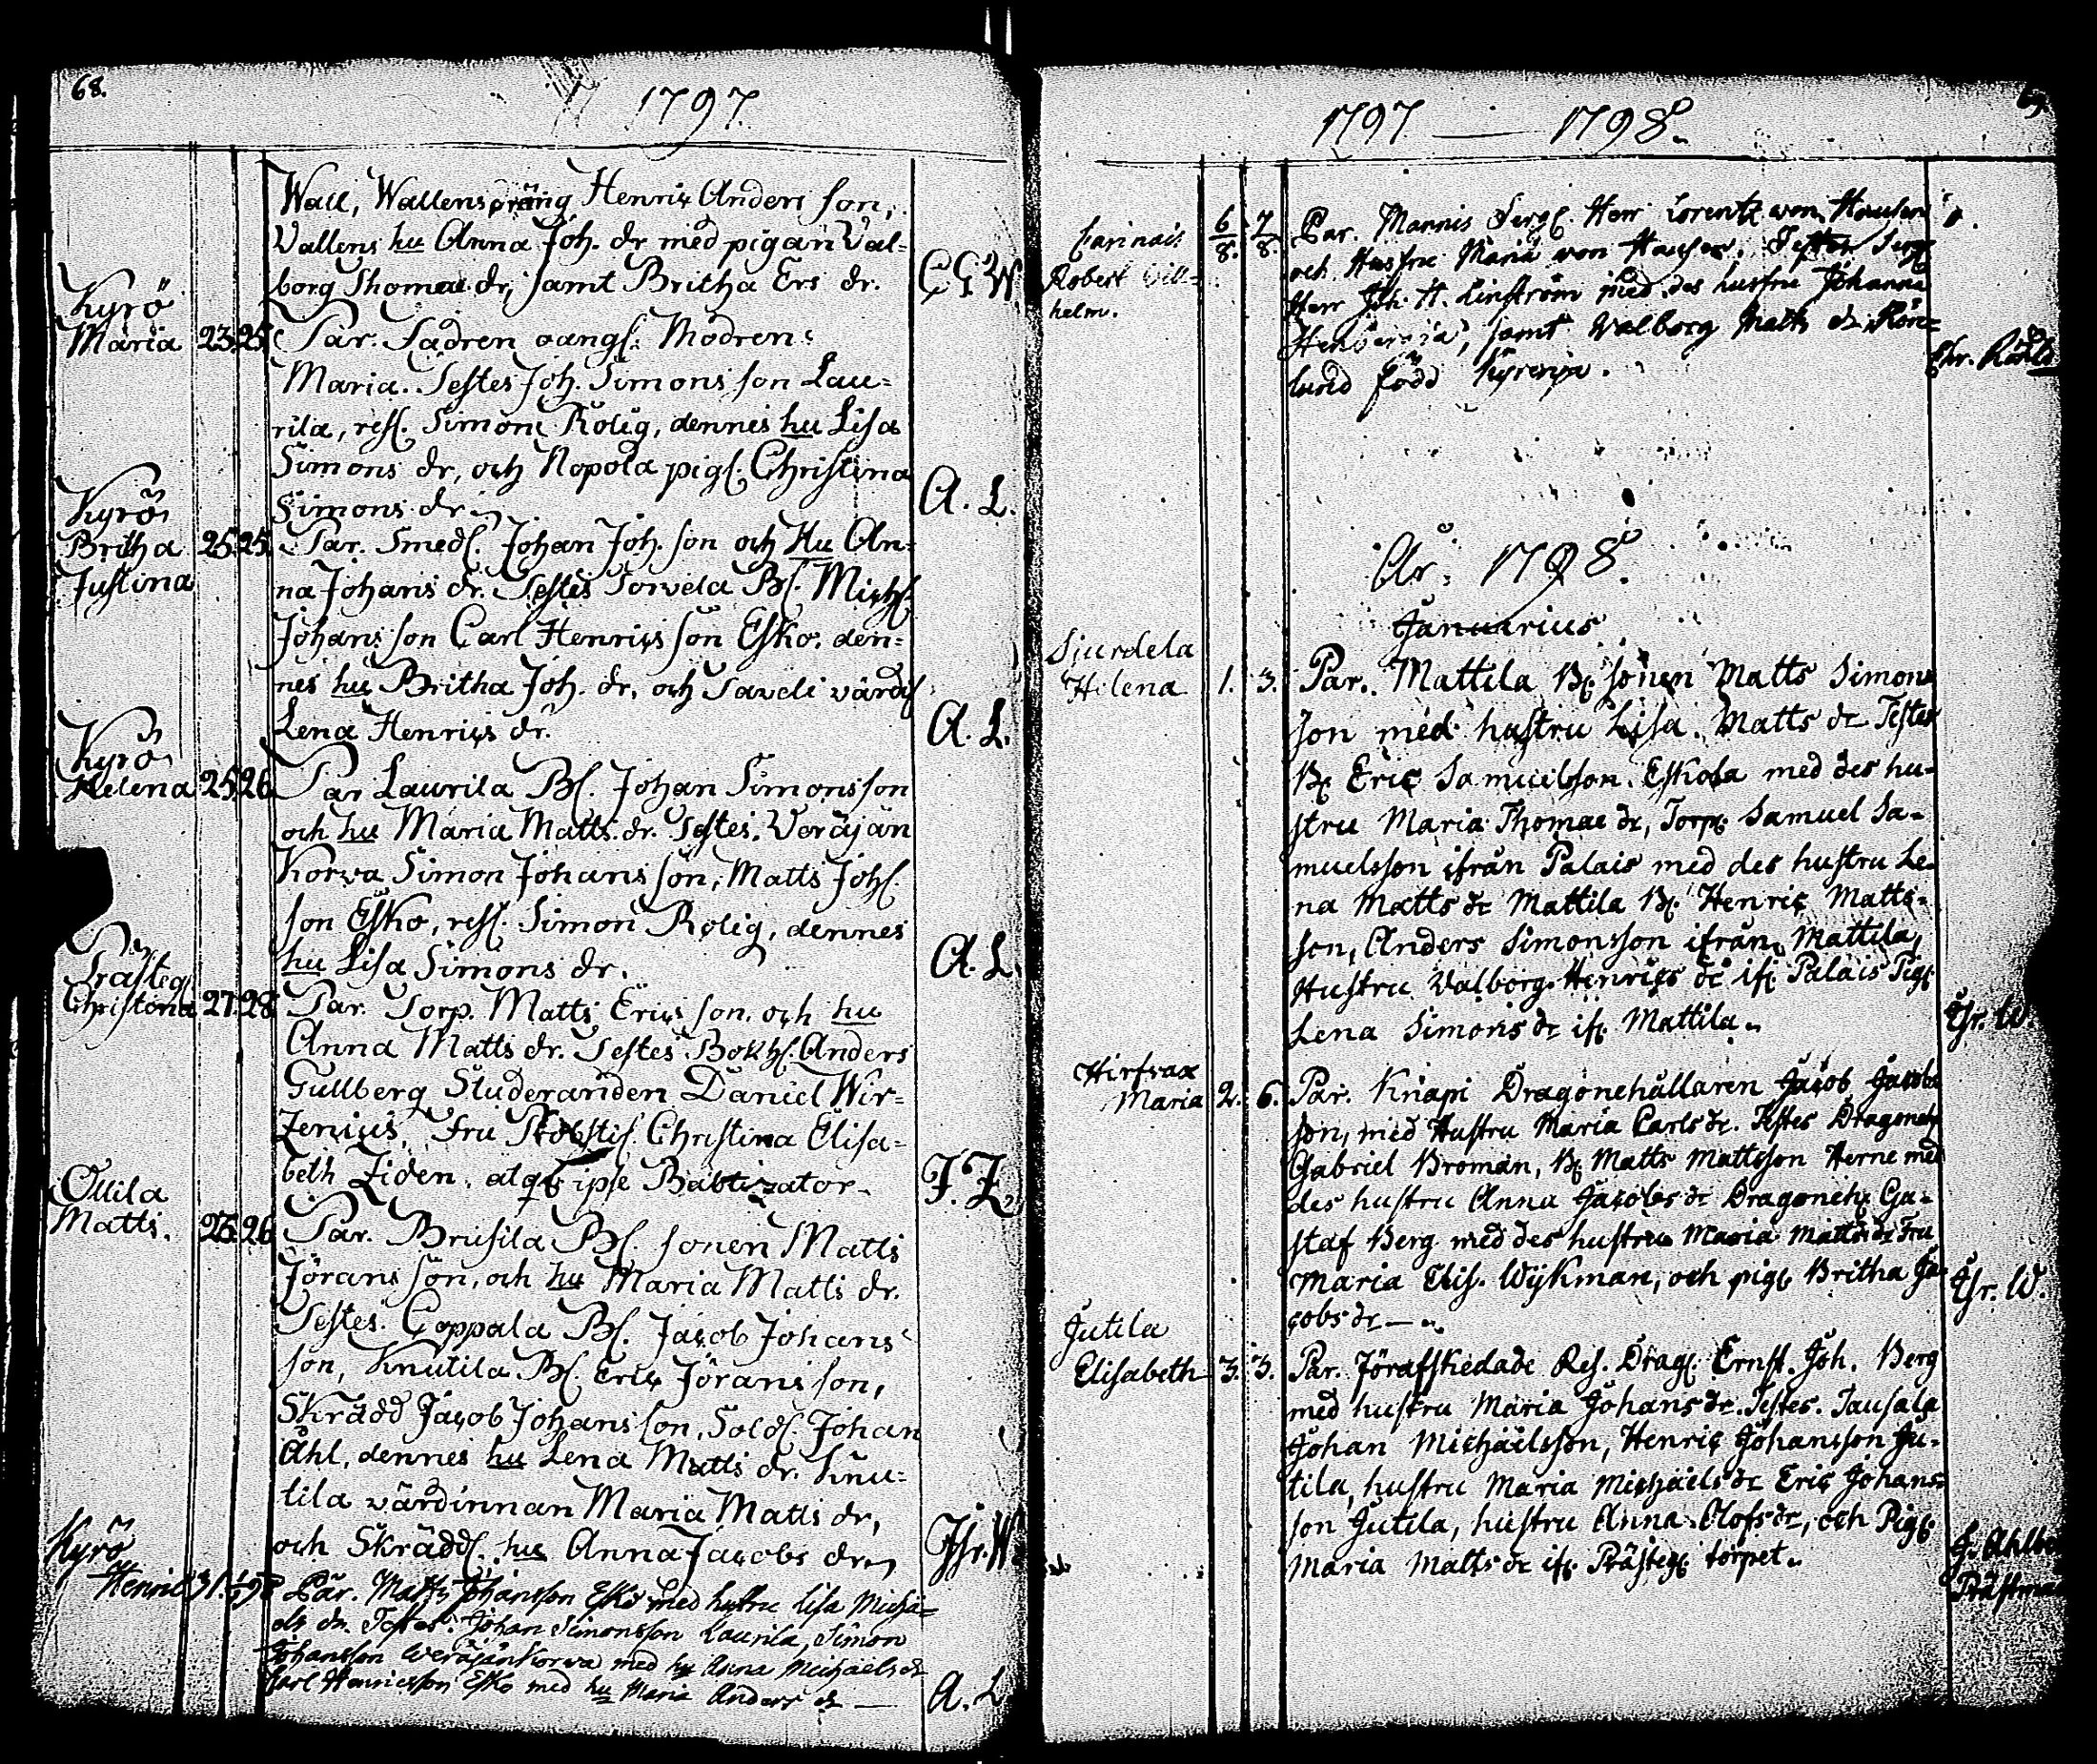 68.
1797.
Wall, Wallens dräng Henric Anders son,
Vallens hu Anna Joh. dr med pigan Val-
borg Thomae dr, samt Britha Ers dr.
C G W.
Kyrö
Maria 23. 25. Par. Fadren oangf: Modren:
Maria. Testes Joh. Simons son Lau-
rila, ress. Simon Rolig, dennes hu Lisa
Simons dr, och Nopola pigs. Christina
Simons dr.
A. L.
Kyrö
Britha 25. 25. Par. Smeds. Johan Joh. son och Hu An-
Justina
na Johans dr. Testes Torvela Bs. Michs
Johans son Carl Henrics son Esko, den-
nes hu Britha Joh. dr, och Saveli värds
Lena Henrics dr.
A. L.
Kyrö
Helena 25. 26. Par Laurila Bs. Johan Simonsson
och hu Maria Matts dr. Testes. Veräjän
Korva Simon Johans son, Matts Johs.
son Esko, ress. Simon Rolig, dennes
hu Lisa Simons dr.
A. L.
Prästeg
Christina 27. 28. Par. Torp. Matts Erics son, och hu
Anna Matts dr. Testes Bokhs. Anders
Gullberg Studeranden Daniel Wir-
zenius, Fru Christina Elisa-
beth Ziden, atq ipse Babtizator.
F. Z.
Ollila
Matts. 25. 26. Par. Brusila Bs. sonen Matts
Jörans son, och hu Maria Matts dr.
Testes. Coppala Bs. Jacob Johans
son, Knutila Bs. Eric Jörans son,
Skrädd Jacob Johans son, Solds. Johan
Åhl, dennes hu Lena Matts dr. Knu-
tila värdinnan Maria Matts dr,
och Skrädds. hu Anna Jacobs dr,
Chr. W.
Kyrö
Henric 31. 1/1 98 Par. Matts Johansson Esko med hustru Lisa Micha-
els dr. Testes. Johan Simonsson Laurila, Simon
Johansson Weräjänkorva med hu Anna Michaels dr
Carl Henricsson Esko med hu Maria Anders dr —
A. L.
1797 — 1798.
69
Carinais 6/8. 7/8. Par. Mannis Serg. Herr Lorentz von Hausen
Robert Vill-
helm.
och Husfru Maria von Hausen. Testes Serg
Herr Joh. H. Linström med des husfru Johanna
samt Walborg Matts dr Rön-
lund
Chr.
År. 1798.
Januarius
Sjurdela
Hilena 1. 3. Par. Mattila Bs. sonen Matts Simons
son med hustru Lisa Matts dr Testes
Bs Eric Samuelsson. Eskola med des hu-
stru Maria Thomae dr, Torps. Samuel Sa-
muelsson ifrån Palais med des hustru Le-
na Matts dr Mattila Bs. Henric Matts-
son, Anders Simonsson ifrån Mattila,
Hustru Valborg Henrics dr if. Palais Pigs
Lena Simons dr if. Mattila.
Chr. W.
Hirfvax
Maria 2. 6. Par. Knapi Dragonehållaren Jacob Jacobs
son, med Hustru Maria Carls dr. Testes Dragoneh
Gabriel Broman, Bs Matts Mattsson Herne med
des hustru Anna Jacobs dr Dragoneh Gu-
staf Berg med des hustru Maria Matts dr Fru
Maria Elis. Wijkman, och pigs. Britha Ja-
cobs dr —
Chr. W.
Jutila
Elisabeth 3. 3. Par. Förafskedade Res. Drags. Ernst. Joh. Berg
med hustru Maria Johans dr. Testes. Tausala
Johan Michaelsson, Henric Johansson Ju-
tila, hustru Maria Michaels dr Eric Johans-
son Jutila, hustru Anna Olofs dr, och Pigs.
Maria Matts dr if. Prästegs torpet.